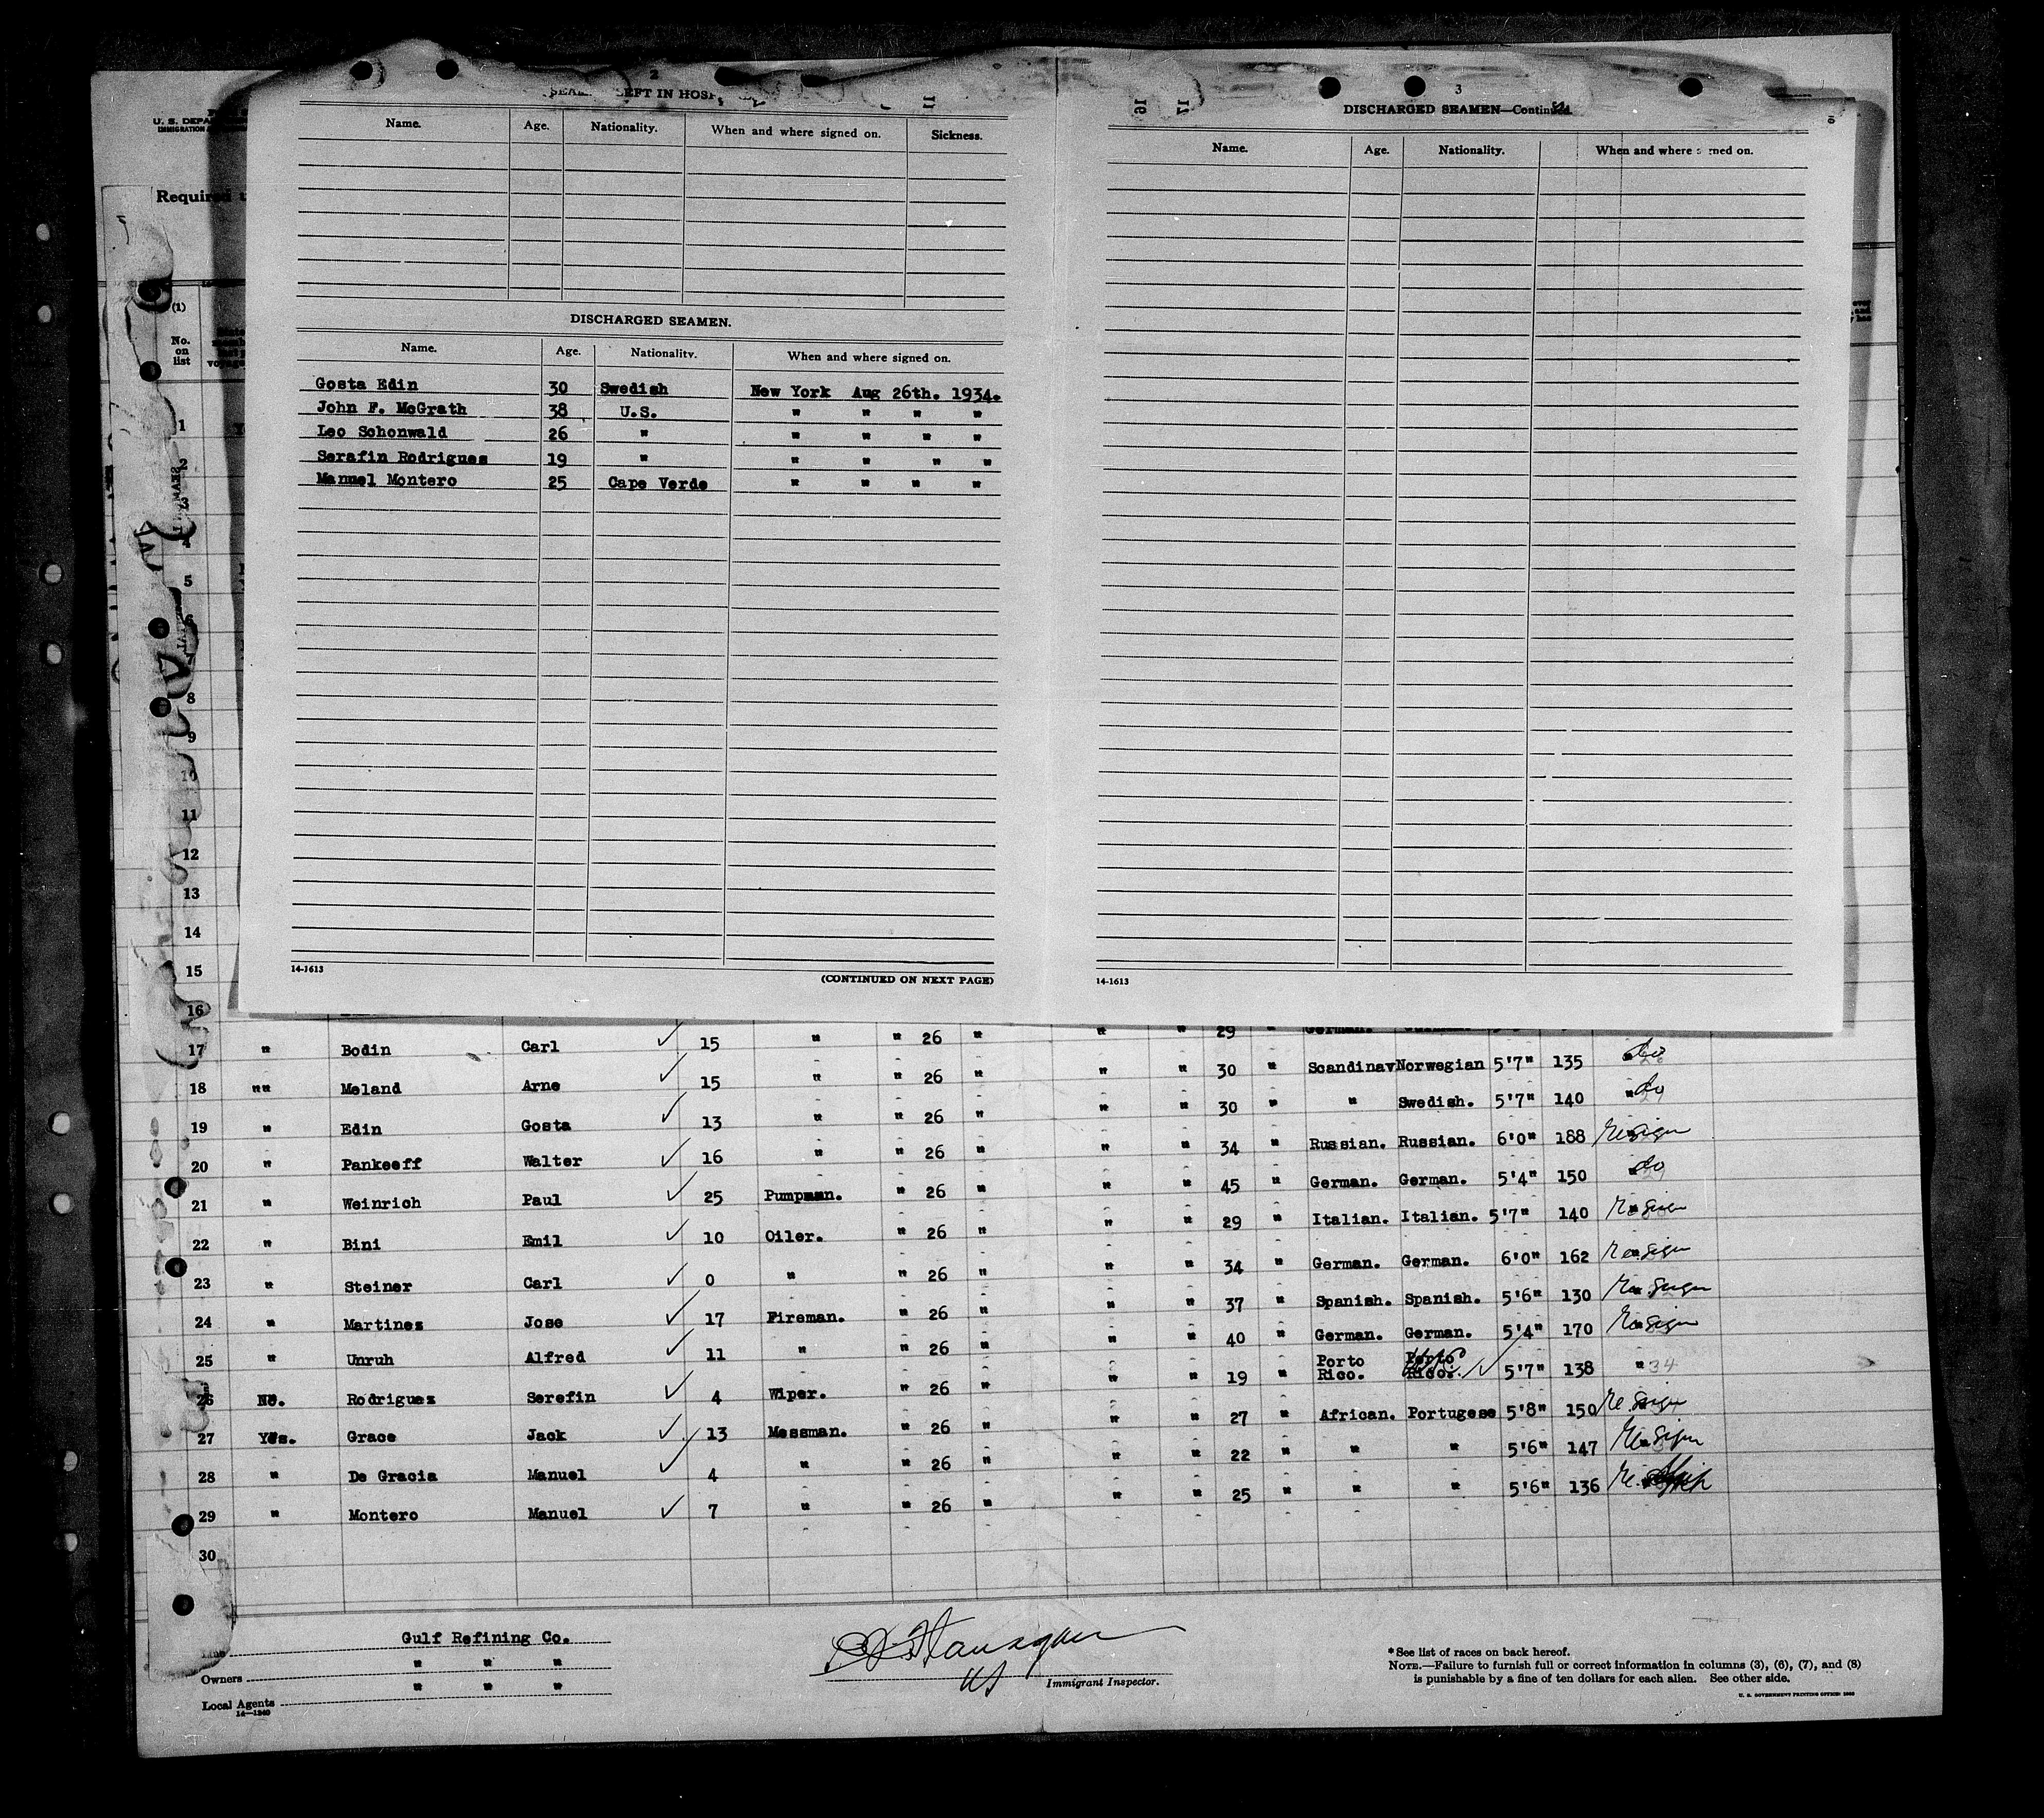 U. S. DEPA
Required u
2
3
DISCHARGED SEAMEN—Continued
Name. Age. Nationality. When and where signed on. Sickness.
Name. Age. Nationality. When and where signed on.
(1)
No.
on
list
DISCHARGED SEAMEN.
Name. Age. Nationality. When and where signed on.
Gosta Edin 30 Swedish New York Aug 26th. 1934.
John F. McGrath 38 U.S. " " " "
Leo Schonwald 26 " " " " "
Serafin Rodrigues 19 " " " " "
Manuel Montero 25 Cape Verde " " " "
1
5
8
9
10
11
12
13
14
15
14-1613 (CONTINUED ON NEXT PAGE)
14-1613
16
17 " Bodin Carl ✓ 15 " " 26 " " " 29 " German.
18 "" Meland Arne ✓ 15 " " 26 " " " 30 " Scandinav Norwegian 5'7" 135 do
19 " Edin Gosta ✓ 13 " " 26 " " " 30 " " Swedish. 5'7" 140 do
20 " Pankeeff Walter ✓ 16 " " 26 " " " 34 " Russian. Russian. 6'0" 188 Resign
21 " Weinrich Paul ✓ 25 Pumpman. " 26 " " " 45 " German. German. 5'4" 150 do
22 " Bini Emil ✓ 10 Oiler. " 26 " " " 29 " Italian. Italian. 5'7" 140 Resign
23 " Steiner Carl ✓ 0 " " 26 " " " 34 " German. German. 6'0" 162 Resign
24 " Martinez Jose ✓ 17 Fireman. " 26 " " " 37 " Spanish. Spanish. 5'6" 130 Resign
25 " Unruh Alfred ✓ 11 " " 26 " " " 40 " German. German. 5'4" 170 Resign
26 No. Rodriguez Serefin ✓ 4 Wiper. " 26 " " " 19 " Porto Rico. Porto Rico. ✓ 5'7" 138 " 34
27 Yes. Grace Jack ✓ 13 Messman. " 26 " " " 27 " African. Portugese 5'8" 150 Resign
28 " De Gracia Manuel ✓ 4 " " 26 " " " 22 " " " 5'6" 147 Resign
29 " Montero Manuel ✓ 7 " " 26 " " " 25 " " " 5'6" 136
30
Gulf Refining Co.
Owners " " "
Local Agents " " "
14—1240
Immigrant Inspector.
*See list of races on back hereof.
NOTE.—Failure to furnish full or correct information in columns (3), (6), (7), and (8)
is punishable by a fine of ten dollars for each alien. See other side.